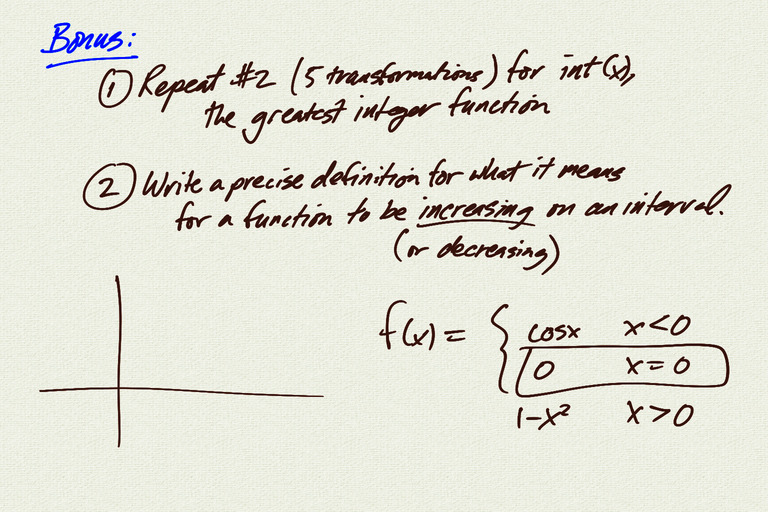 Bonus:
① Repeat #2 (5 transformations) for int(x),
the greatest integer function
② Write a precise definition for what it means
for a function to be increasing on an interval.
(or decreasing)
f(x) = { cosx x<0
0 x=0
1-x² x>0